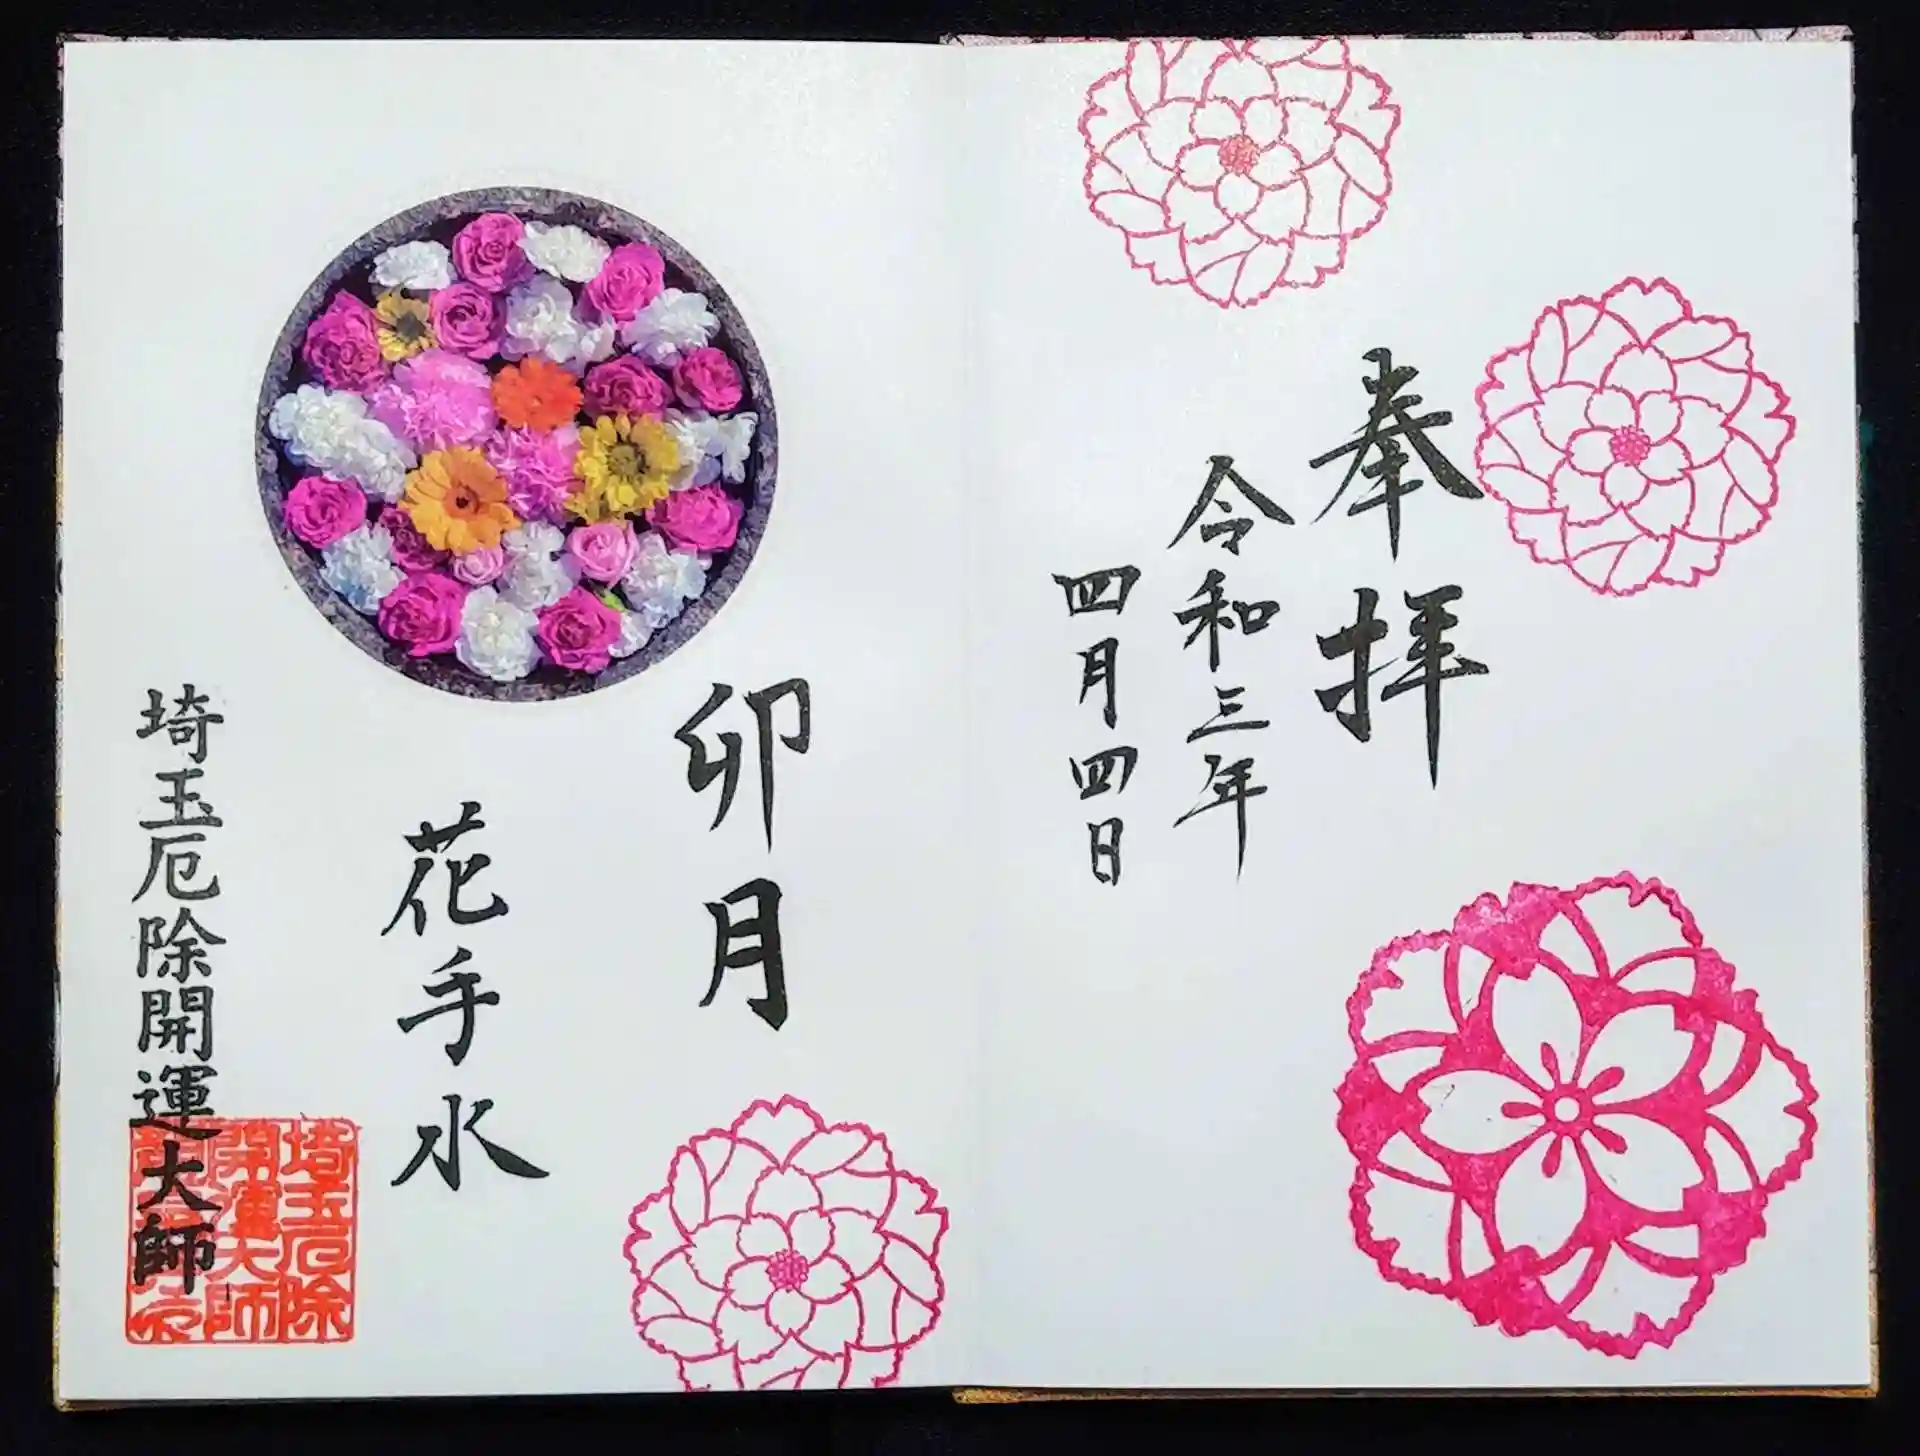 奉拝
令和三年
四月四日
卯月
花手水
埼玉厄除開運大師
埼玉厄除
開運大師